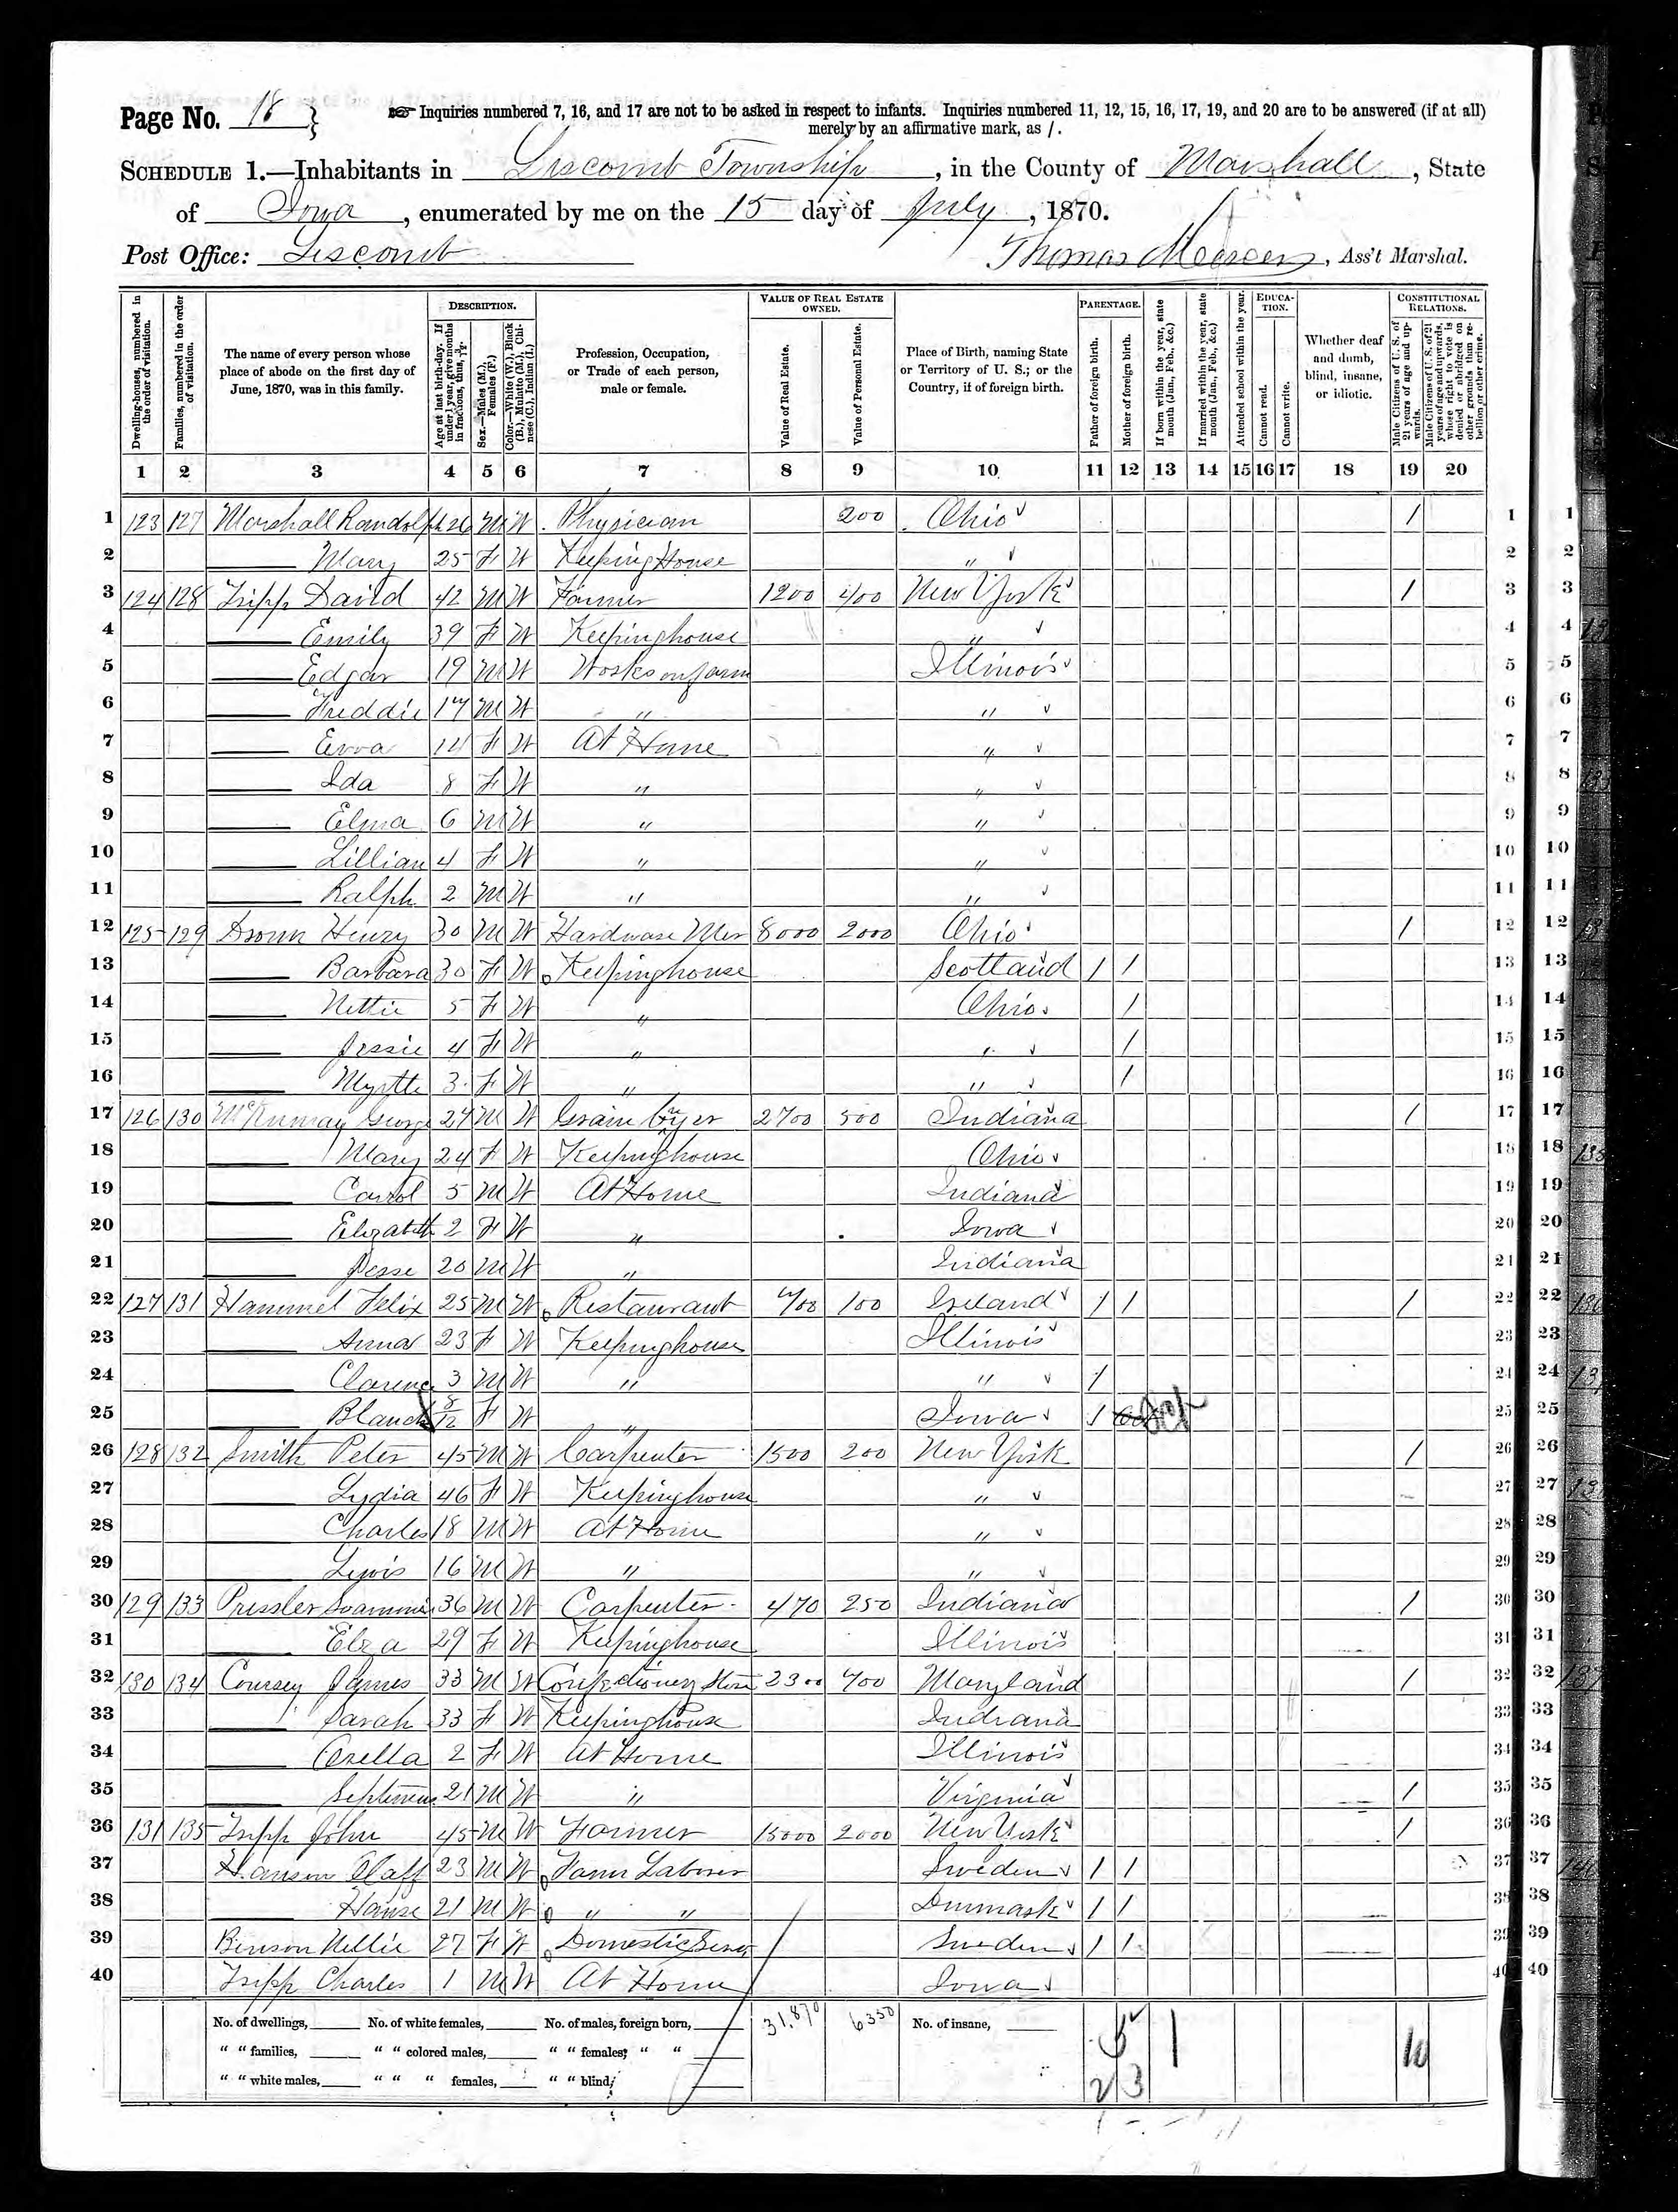 Page No. 18 } ☞ Inquiries numbered 7, 16, and 17 are not to be asked in respect to infants. Inquiries numbered 11, 12, 15, 16, 17, 19, and 20 are to be answered (if at all)
merely by an affirmative mark, as /.
SCHEDULE 1.—Inhabitants in Liscomb Township, in the County of Marshall, State
of Iowa, enumerated by me on the 15 day of July, 1870.
Post Office: Liscomb Thomas , Ass't Marshal.
Dwelling-houses, numbered in the order of visitation.
Families, numbered in the order of visitation.
The name of every person whose place of abode on the first day of June, 1870, was in this family.
DESCRIPTION.
Age at last birth-day. If under 1 year, give months in fractions, thus, 3/12.
Sex.—Males (M.), Females (F.)
Color.—White (W.), Black (B.), Mulatto (M.), Chinese (C.), Indian (I.)
Profession, Occupation, or Trade of each person, male or female.
VALUE OF REAL ESTATE OWNED.
Value of Real Estate.
Value of Personal Estate.
Place of Birth, naming State or Territory of U. S.; or the Country, if of foreign birth.
PARENTAGE.
Father of foreign birth.
Mother of foreign birth.
If born within the year, state month (Jan., Feb., &c.)
If married within the year, state month (Jan., Feb., &c.)
Attended school within the year.
EDUCATION.
Cannot read.
Cannot write.
Whether deaf and dumb, blind, insane, or idiotic.
CONSTITUTIONAL RELATIONS.
Male Citizens of U. S. of 21 years of age and upwards.
Male Citizens of U. S. of 21 years of age and upwards, whose right to vote is denied or abridged on other grounds than rebellion or other crime.
1 2 3 4 5 6 7 8 9 10 11 12 13 14 15 16 17 18 19 20
1 123 127 Marshall Randolph 26 M W Physician 200 Ohio / 1
2 —— Mary 25 F W Keeping House " 2
3 124 128 Tripp David 42 M W Farmer 1200 400 New York / 3
4 —— Emily 39 F W Keepinghouse " 4
5 —— Edgar 19 M W Works on farm Illinois 5
6 —— Freddie 17 M W " " 6
7 —— Evva 14 F W At Home " 7
8 —— Ida 8 F W " " 8
9 —— Elma 6 M W " " 9
10 —— Lillian 4 F W " " 10
11 —— Ralph 2 M W " " 11
12 125 129 Henry 30 M W Hardware Mer 8000 2000 Ohio / 12
13 —— Barbara 30 F W Keepinghouse Scotland / / 13
14 —— Nettie 5 F W " Ohio / 14
15 —— Jessie 4 F W " " / 15
16 —— Myrtle 3 F W " " / 16
17 126 130 George 24 M W Grain Buyer 2700 500 Indiana / 17
18 —— Mary 24 F W Keepinghouse Ohio 18
19 —— Carrol 5 M W At Home Indiana 19
20 —— Elizabeth 2 F W " Iowa 20
21 —— Jesse 20 M W " Indiana 21
22 127 131 Hammel Felix 25 M W Restaurant 700 100 Ireland / / / 22
23 —— Anna 23 F W Keepinghouse Illinois 23
24 —— Clarence 3 M W " " / 24
25 —— Blanch 8/12 F W " Iowa / Oct 25
26 128 132 Smith Peter 45 M W Carpenter 1500 200 New York / 26
27 —— Lydia 46 F W Keepinghouse " 27
28 —— Charles 18 M W At Home " 28
29 —— Lewis 16 M W " " 29
30 129 133 Pressler 36 M W Carpenter 470 250 Indiana / 30
31 —— Elza 29 F W Keepinghouse Illinois 31
32 130 134 Coursey James 33 M W Confectionery Store 2300 700 Maryland / 32
33 —— Sarah 33 F W Keepinghouse Indiana 33
34 —— Orella 2 F W At Home Illinois 34
35 —— Septimus 21 M W " Virginia / 35
36 131 135 Tripp John 45 M W Farmer 15000 2000 New York / 36
37 Hanson Olaff 23 M W Farm Laborer Sweden / / 37
38 —— Hanse 21 M W " " Dunmark / / 38
39 Benson Nellie 27 F W Domestic Serv Sweden / / 39
40 Tripp Charles 1 M W At Home Iowa 40
No. of dwellings, No. of white females, No. of males, foreign born, 31,870 6350 No. of insane, 5 1 10
" " families, " " colored males, " " females, " "
" " white males, " " " females, " " blind, 2 3